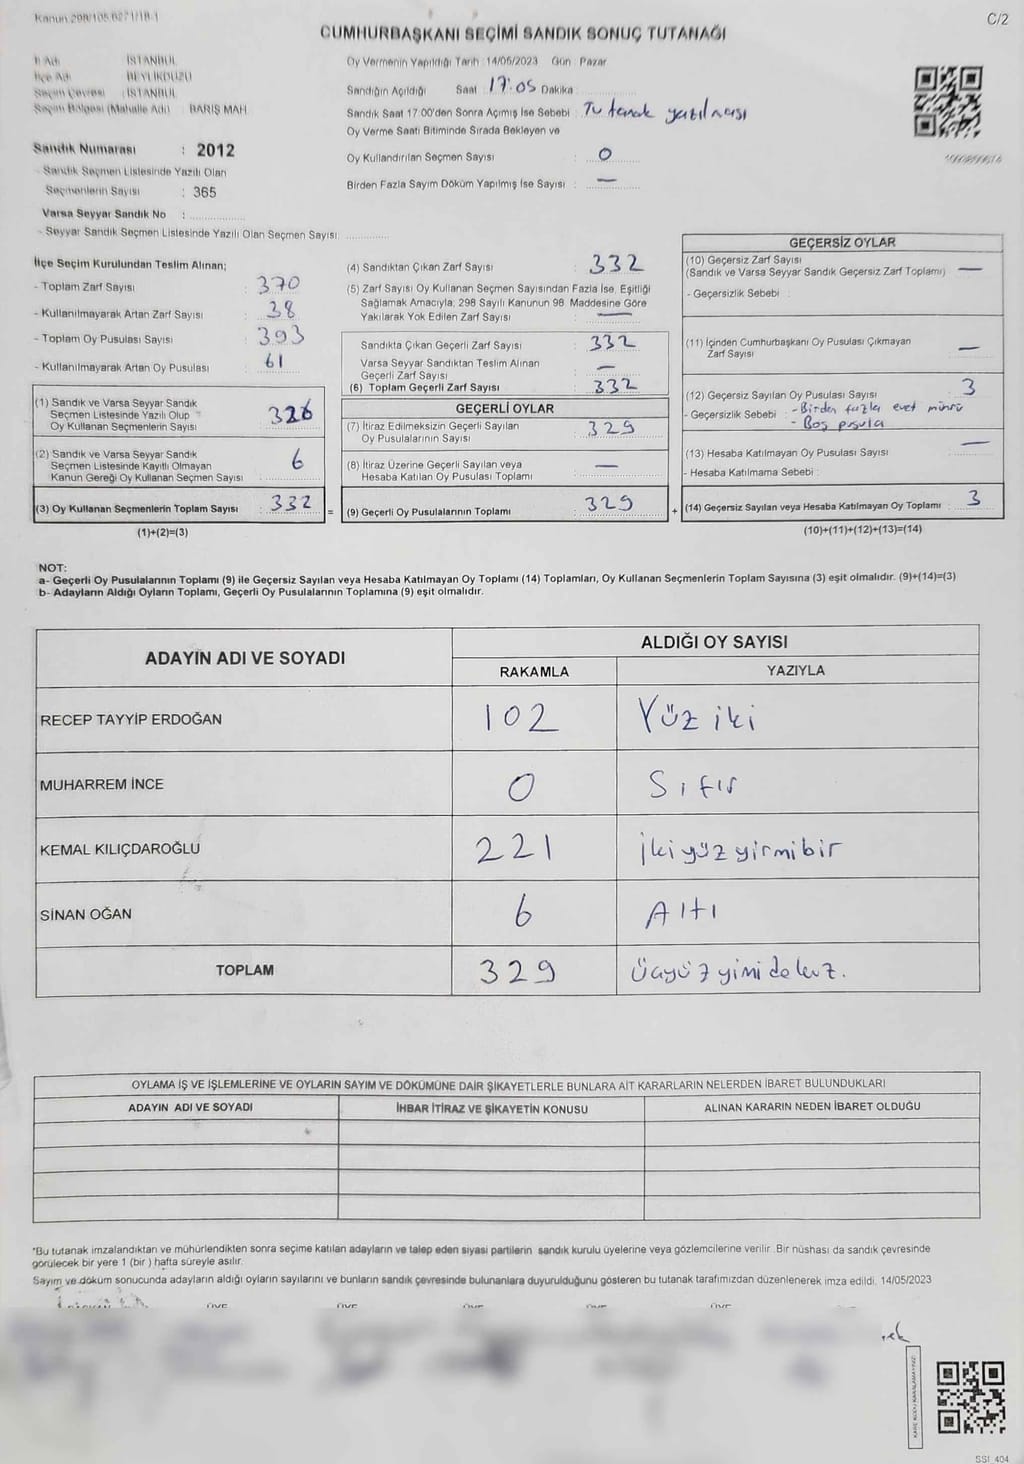 Kanun 298/105
C/2
CUMHURBAŞKANI SEÇİMİ SANDIK SONUÇ TUTANAĞI
İl Adı : İSTANBUL
İlçe Adı : BEYLİKDÜZÜ
Seçim Çevresi : İSTANBUL
Seçim Bölgesi (Mahalle Adı) : BARIŞ MAH
Sandık Numarası : 2012
- Sandık Seçmen Listesinde Yazılı Olan
Seçmenlerin Sayısı : 365
Varsa Seyyar Sandık No :
- Seyyar Sandık Seçmen Listesinde Yazılı Olan Seçmen Sayısı:
Oy Vermenin Yapıldığı Tarih : 14/05/2023 Gün : Pazar
Sandığın Açıldığı Saat 17:05 Dakika
Sandık Saat 17.00'den Sonra Açımış İse Sebebi : Tutanak yazılması
Oy Verme Saati Bitiminde Sırada Bekleyen ve
Oy Kullandırılan Seçmen Sayısı : 0
Birden Fazla Sayım Döküm Yapılmış İse Sayısı : —
İlçe Seçim Kurulundan Teslim Alınan;
- Toplam Zarf Sayısı : 370
- Kullanılmayarak Artan Zarf Sayısı : 38
- Toplam Oy Pusulası Sayısı : 393
- Kullanılmayarak Artan Oy Pusulası : 61
(1) Sandık ve Varsa Seyyar Sandık
Seçmen Listesinde Yazılı Olup
Oy Kullanan Seçmenlerin Sayısı : 326
(2) Sandık ve Varsa Seyyar Sandık
Seçmen Listesinde Kayıtlı Olmayan
Kanun Gereği Oy Kullanan Seçmen Sayısı : 6
(3) Oy Kullanan Seçmenlerin Toplam Sayısı : 332 =
(1)+(2)=(3)
(4) Sandıktan Çıkan Zarf Sayısı : 332
(5) Zarf Sayısı Oy Kullanan Seçmen Sayısından Fazla İse, Eşitliği
Sağlamak Amacıyla; 298 Sayılı Kanunun 98. Maddesine Göre
Yakılarak Yok Edilen Zarf Sayısı : —
Sandıkta Çıkan Geçerli Zarf Sayısı : 332
Varsa Seyyar Sandıktan Teslim Alınan
Geçerli Zarf Sayısı : —
(6) Toplam Geçerli Zarf Sayısı : 332
GEÇERLİ OYLAR
(7) İtiraz Edilmeksizin Geçerli Sayılan
Oy Pusulalarının Sayısı : 329
(8) İtiraz Üzerine Geçerli Sayılan veya
Hesaba Katılan Oy Pusulası Toplamı : —
(9) Geçerli Oy Pusulalarının Toplamı : 329 +
GEÇERSİZ OYLAR
(10) Geçersiz Zarf Sayısı
(Sandık ve Varsa Seyyar Sandık Geçersiz Zarf Toplamı) —
- Geçersizlik Sebebi :
(11) İçinden Cumhurbaşkanı Oy Pusulası Çıkmayan
Zarf Sayısı —
(12) Geçersiz Sayılan Oy Pusulası Sayısı : 3
- Geçersizlik Sebebi : - Birden fazla evet mührü
- Boş pusula
(13) Hesaba Katılmayan Oy Pusulası Sayısı : —
- Hesaba Katılmama Sebebi :
(14) Geçersiz Sayılan veya Hesaba Katılmayan Oy Toplamı : 3
(10)+(11)+(12)+(13)=(14)
NOT:
a- Geçerli Oy Pusulalarının Toplamı (9) ile Geçersiz Sayılan veya Hesaba Katılmayan Oy Toplamı (14) Toplamları, Oy Kullanan Seçmenlerin Toplam Sayısına (3) eşit olmalıdır. (9)+(14)=(3)
b- Adayların Aldığı Oyların Toplamı, Geçerli Oy Pusulalarının Toplamına (9) eşit olmalıdır.
ADAYIN ADI VE SOYADI
ALDIĞI OY SAYISI
RAKAMLA YAZIYLA
RECEP TAYYİP ERDOĞAN 102 Yüz iki
MUHARREM İNCE 0 Sıfır
KEMAL KILIÇDAROĞLU 221 İkiyüzyirmibir
SİNAN OĞAN 6 Altı
TOPLAM 329
OYLAMA İŞ VE İŞLEMLERİNE VE OYLARIN SAYIM VE DÖKÜMÜNE DAİR ŞİKAYETLERLE BUNLARA AİT KARARLARIN NELERDEN İBARET BULUNDUKLARI
ADAYIN ADI VE SOYADI İHBAR İTİRAZ VE ŞİKAYETİN KONUSU ALINAN KARARIN NEDEN İBARET OLDUĞU
*Bu tutanak imzalandıktan ve mühürlendikten sonra seçime katılan adayların ve talep eden siyasi partilerin sandık kurulu üyelerine veya gözlemcilerine verilir. Bir nüshası da sandık çevresinde
görülecek bir yere 1 (bir) hafta süreyle asılır.
Sayım ve döküm sonucunda adayların aldığı oyların sayılarını ve bunların sandık çevresinde bulunanlara duyurulduğunu gösteren bu tutanak tarafımızdan düzenlenerek imza edildi. 14/05/2023
ÜYE ÜYE ÜYE ÜYE ÜYE
KARE KODU KARALAMAYINIZ!
SSI_404